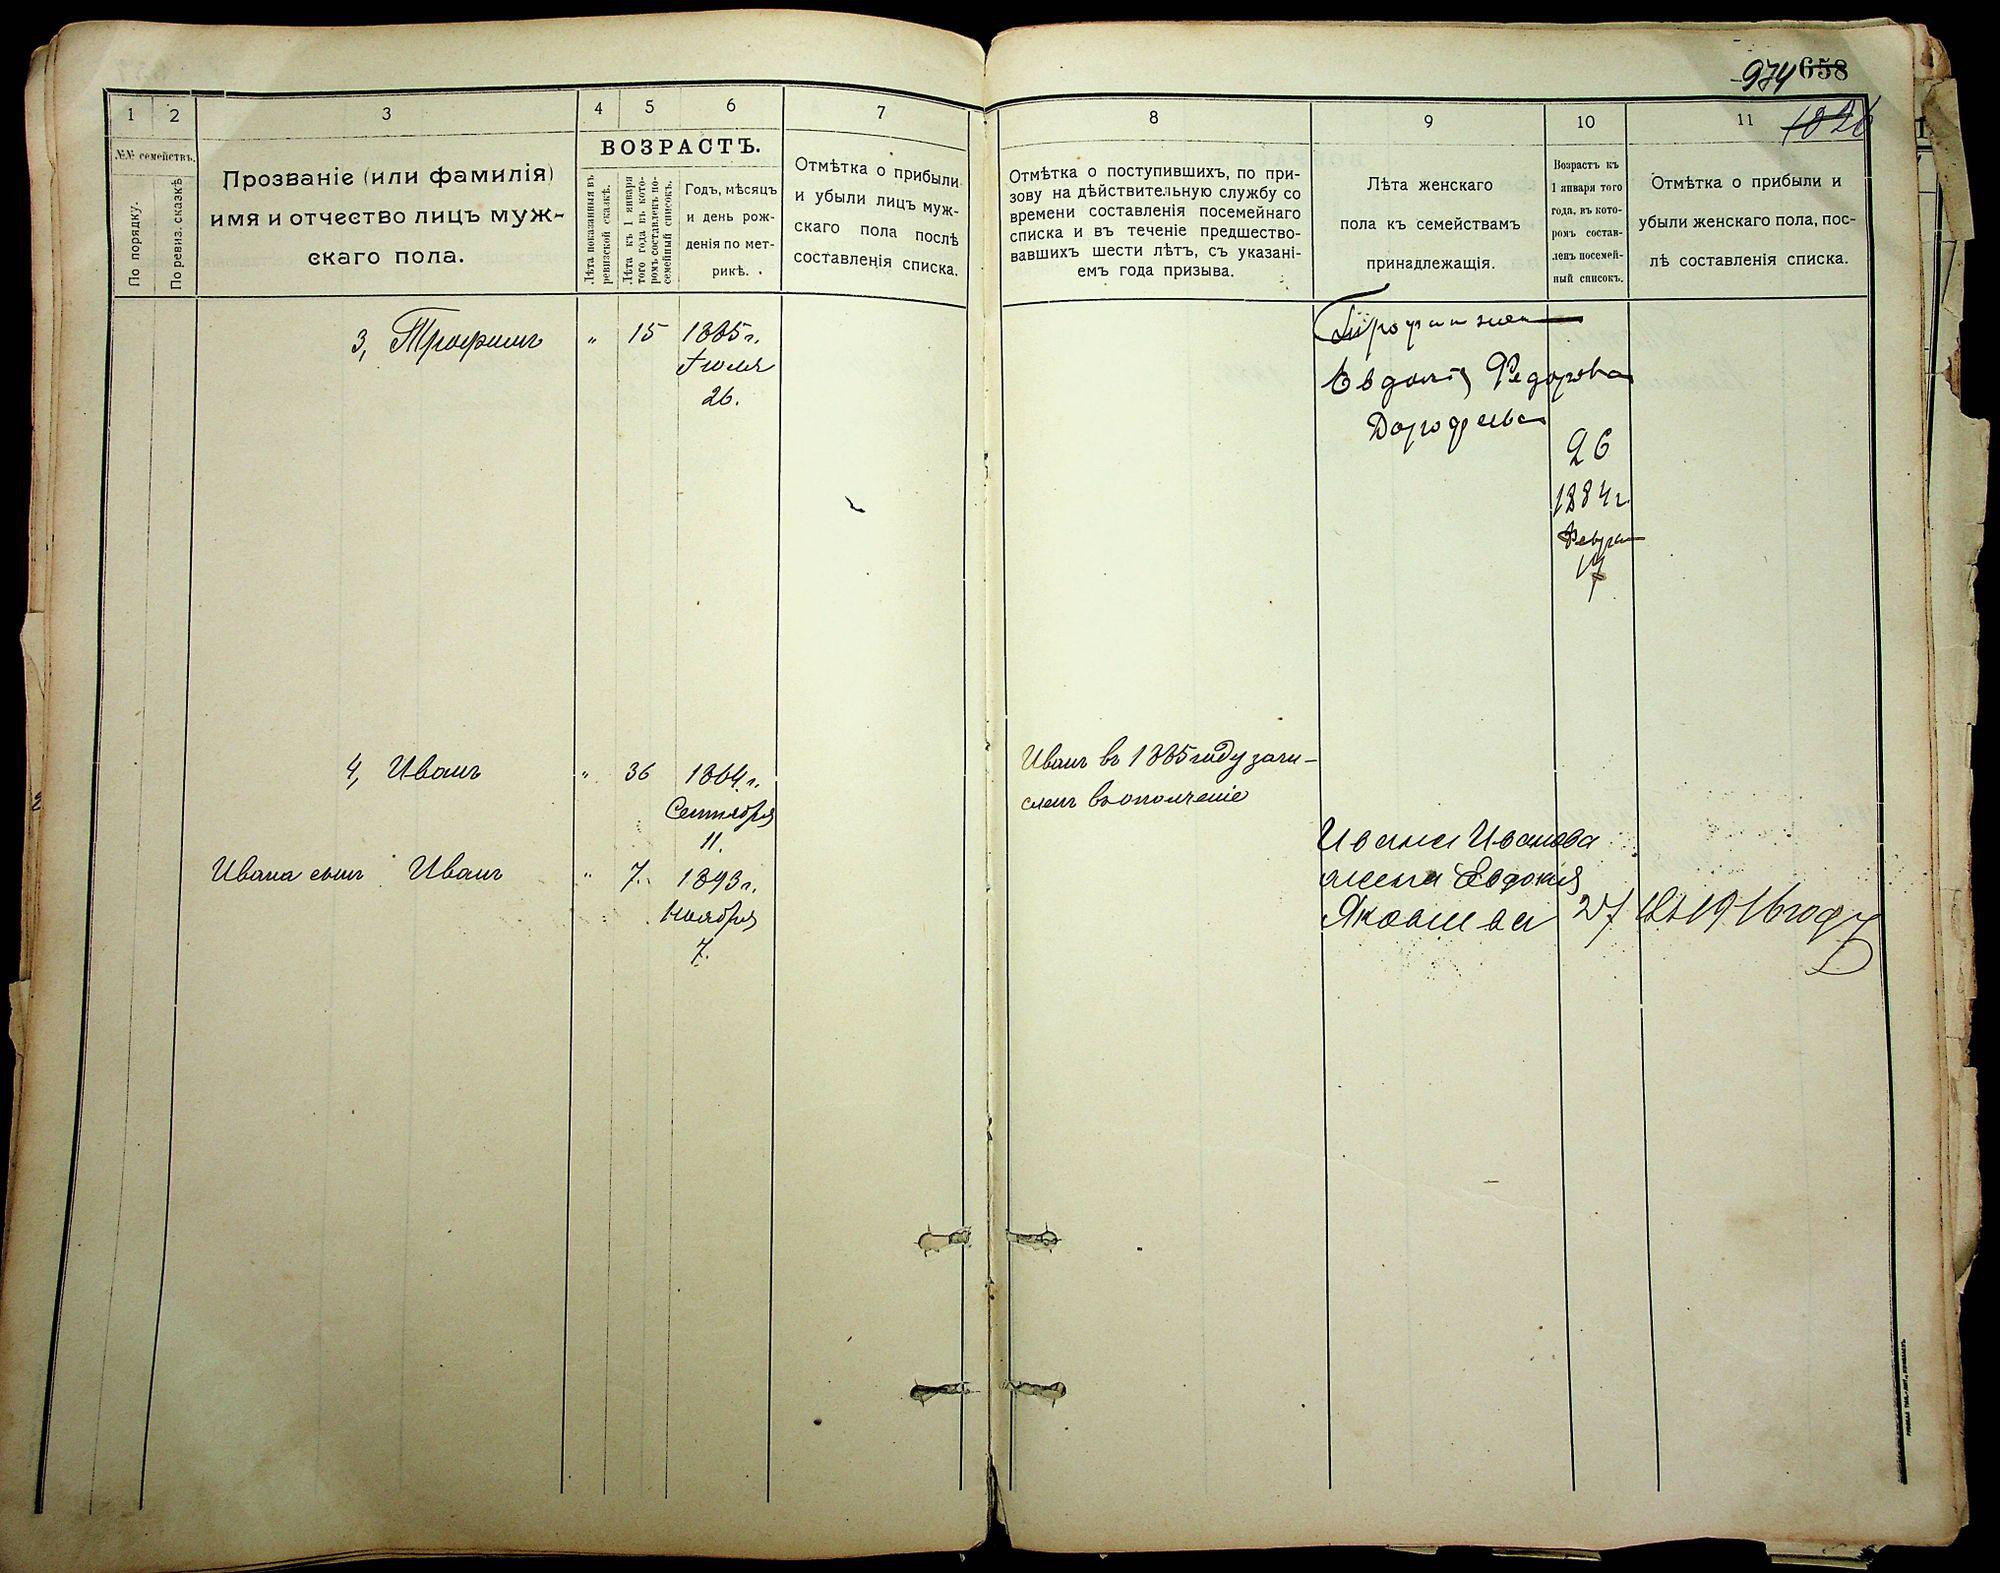 974 658
1826
1
2
3
4
5
6
7
№№ семействъ.
По порядку.
По ревиз. сказкѣ
Прозваніе (или фамилія)
имя и отчество лицъ муж-
скаго пола.
ВОЗРАСТЪ.
Лѣта показанныя въ
ревизской сказкѣ.
Лѣта къ 1 января
того года въ кото-
ромъ составленъ по-
семейный списокъ.
Годъ, мѣсяцъ
и день рож-
денія по мет-
рикѣ.
Отмѣтка о прибыли
и убыли лицъ муж-
скаго пола послѣ
составленія списка.
3, Трофимъ " 15 1885 г.
Іюля
26.
4, Иванъ " 36 1864 г.
Сентября
11.
Ивана сынъ Иванъ " 7. 1893 г.
Ноября
7.
8
9
10
11
Отмѣтка о поступившихъ, по при-
зову на дѣйствительную службу со
времени составленія посемейнаго
списка и въ теченіе предшество-
вавшихъ шести лѣтъ, съ указані-
емъ года призыва.
Лѣта женскаго
пола къ семействамъ
принадлежащія.
Возрастъ къ
1 января того
года, въ кото-
ромъ состав-
ленъ посемей-
ный списокъ.
Отмѣтка о прибыли и
убыли женскаго пола, пос-
лѣ составленія списка.
Трофима жена
Федорова
Дорофеева
26
1884 г.
Февра
Иванъ въ 1885 году зачи-
сленъ въ ополченіе
Ивана Иванова
жена Евдокия
Яковлева 27 1916 году